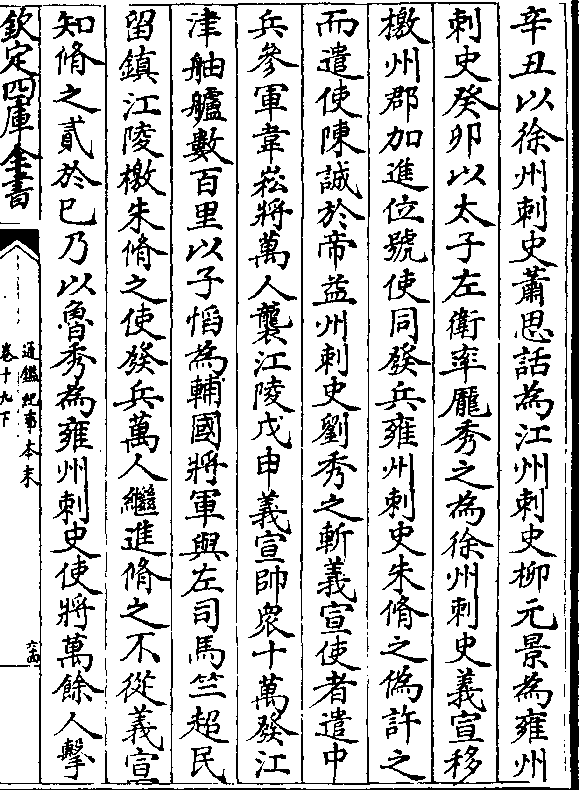 辛丑以徐州刺史蕭思話為江州刺史柳元景為雍州
刺史癸卯以太子左衛率龎秀之為徐州刺史義宣移
檄州郡加進位號使同發兵雍州刺史朱脩之偽許之
而遣使陳誠於帝益州刺史劉秀之斬義宣使者遣中
兵參軍韋崧將萬人襲江陵戊申義宣帥衆十萬發江
津舳艫數百里以子慆為輔國將軍與左司馬竺超民
留鎮江陵檄朱脩之使發兵萬人繼進脩之不從義宣
知脩之貳於已乃以魯秀為雍州刺史使將萬餘人擊
欽定四庫全書
通鑑紀事本末
卷十九下